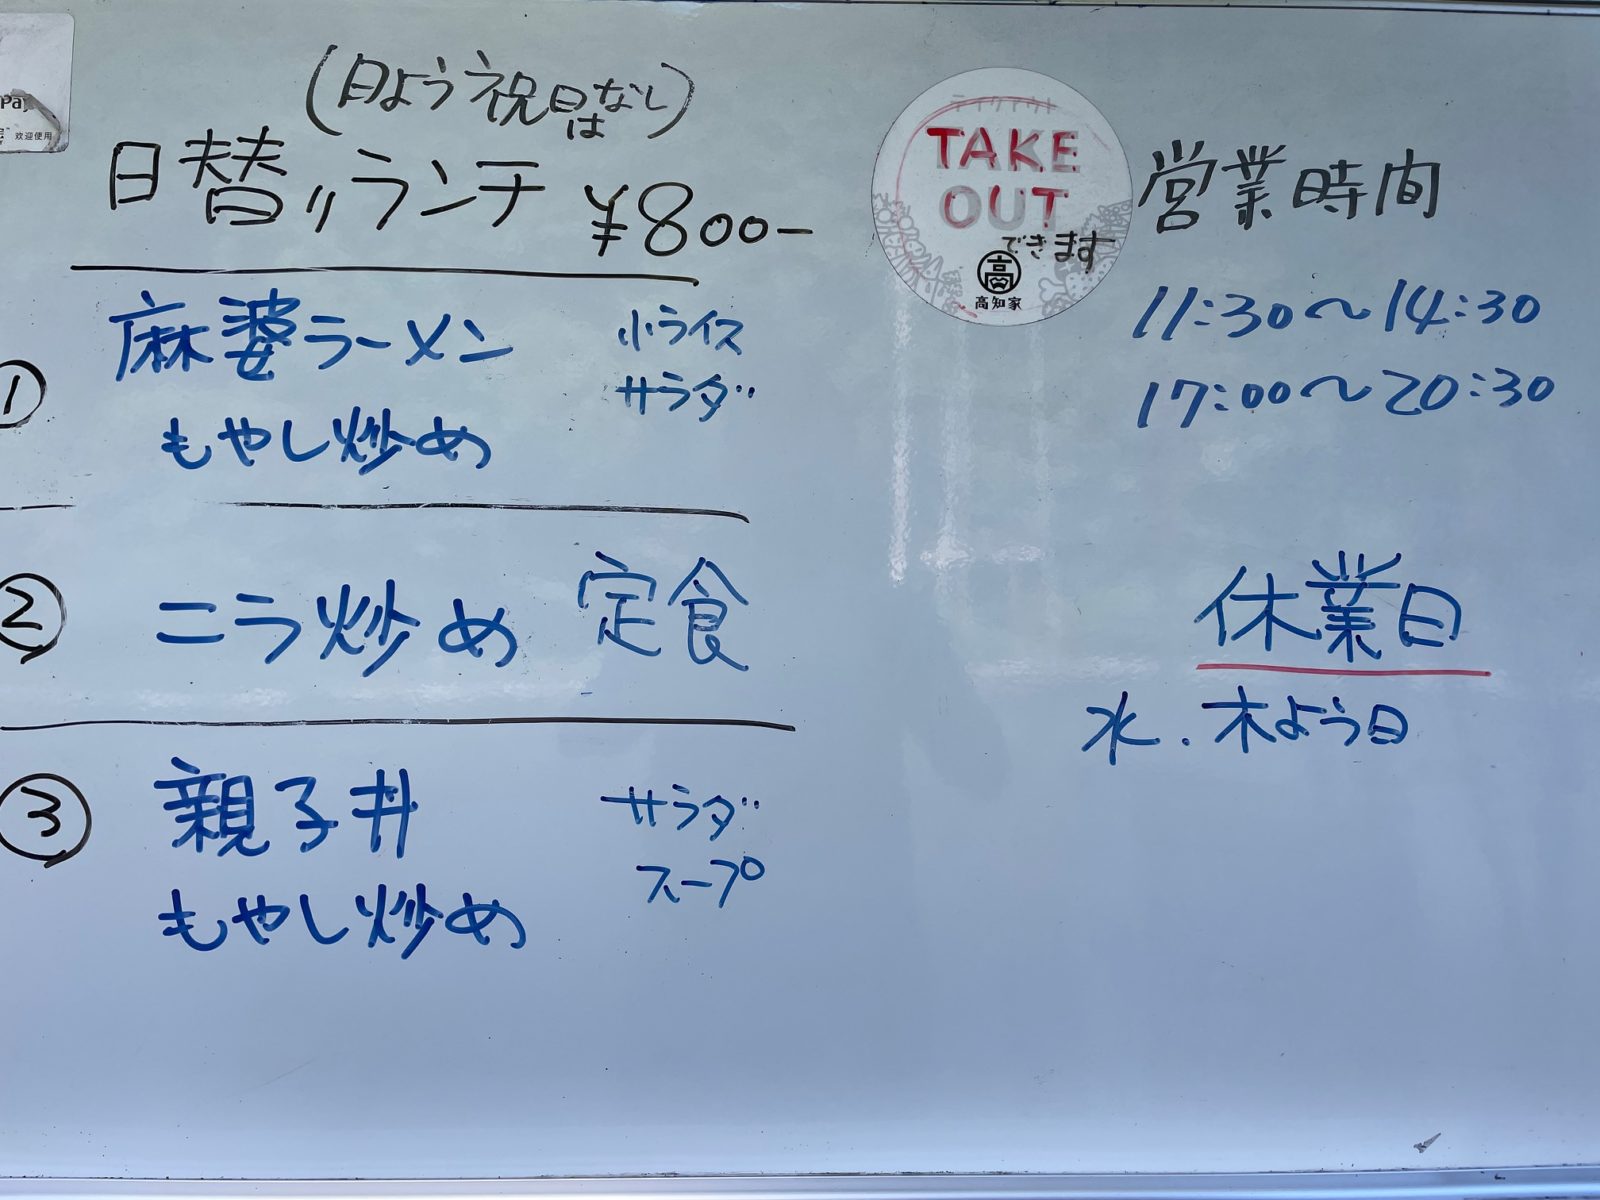 (日よう祝日はなし)
日替りランチ ¥800-
① 麻婆ラーメン 小ライス
もやし炒め サラダ
② ニラ炒め 定食
③ 親子丼 サラダ
もやし炒め スープ
テイクアウト
TAKE
OUT
できます
高
高知家
営業時間
11:30〜14:30
17:00〜20:30
休業日
水.木よう日
Pay
欢迎使用